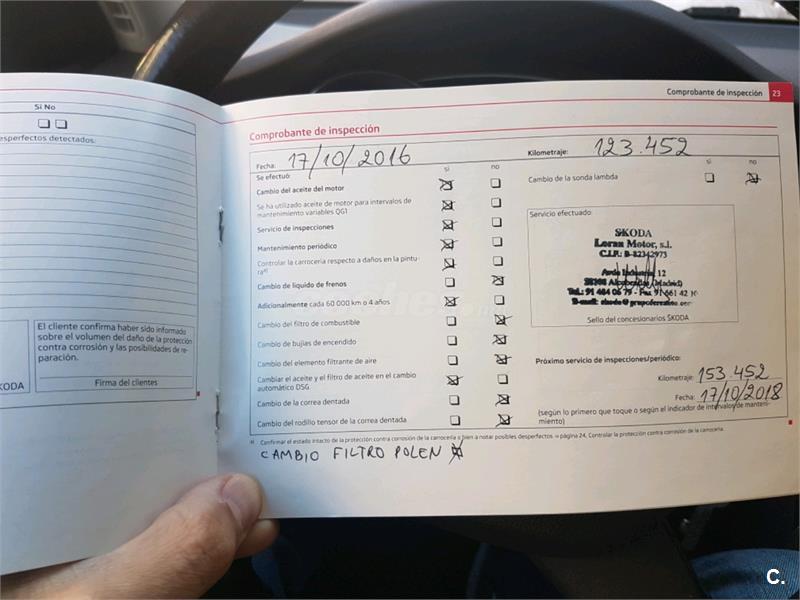 Si No
esperfectos detectados:
El cliente confirma haber sido informado
sobre el volumen del daño de la protección
contra corrosión y las posibilidades de re-
paración.
KODA
Firma del clientes
Comprobante de inspección 23
Comprobante de inspección
Fecha: 17/10/2016
Kilometraje: 123.452
Se efectuó:
si no
Cambio del aceite del motor
Se ha utilizado aceite de motor para intervalos de
mantenimiento variables QG1
Servicio de inspecciones
Mantenimiento periódico
Controlar la carrocería respecto a daños en la pintu-
raᵃ⁾
Cambio de líquido de frenos
Adicionalmente cada 60 000 km o 4 años
Cambio del filtro de combustible
Cambio de bujías de encendido
Cambio del elemento filtrante de aire
Cambiar el aceite y el filtro de aceite en el cambio
automático DSG
Cambio de la correa dentada
Cambio del rodillo tensor de la correa dentada
si no
Cambio de la sonda lambda
Servicio efectuado:
SKODA
Loran Motor, s.l.
C.I.F.: B-82342973
Avda. Industria, 12
28108 Alcobendas (Madrid)
Tel.: 91 484 06 79 - Fax 91 661 42
E-mail:
Sello del concesionarios ŠKODA
Próximo servicio de inspecciones/periódico:
Kilometraje: 153.452
Fecha: 17/10/2018
(según lo primero que toque o según el indicador de intervalos de manteni-
miento)
a) Confirmar el estado intacto de la protección contra corrosión de la carrocería o bien a notar posibles desperfectos ⇒ página 24, Controlar la protección contra corrosión de la carrocería.
CAMBIO FILTRO POLEN
C.